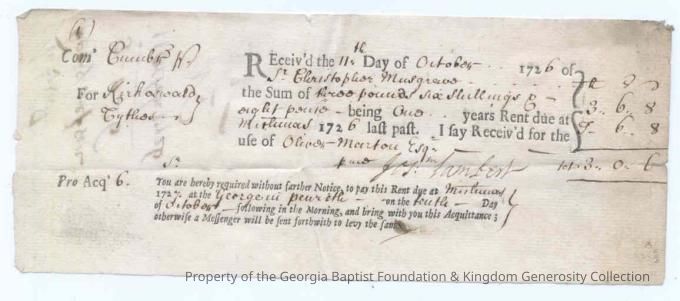 (1)
Com' Cumbr' ss.
For Kirkoswald
Tythes
Receiv'd the 11th Day of October 1726 of
Sr. Christopher Musgrave
the Sum of three pounds six Shillings &
eight pence being One years Rent due at
Michmas 1726 last past. I say Receiv'd for the
use of Oliver Marton Esqr.
3. 6. 8
6. 8
3. 0. 6
Lambert
Pro Acq' 6.
You are hereby required without farther Notice, to pay this Rent due at Michmas
1727. at the George in penrith on the tenth Day
of October following in the Morning, and bring with you this Acquittance;
otherwise a Messenger will be sent forthwith to levy the same
Property of the Georgia Baptist Foundation & Kingdom Generosity Collection